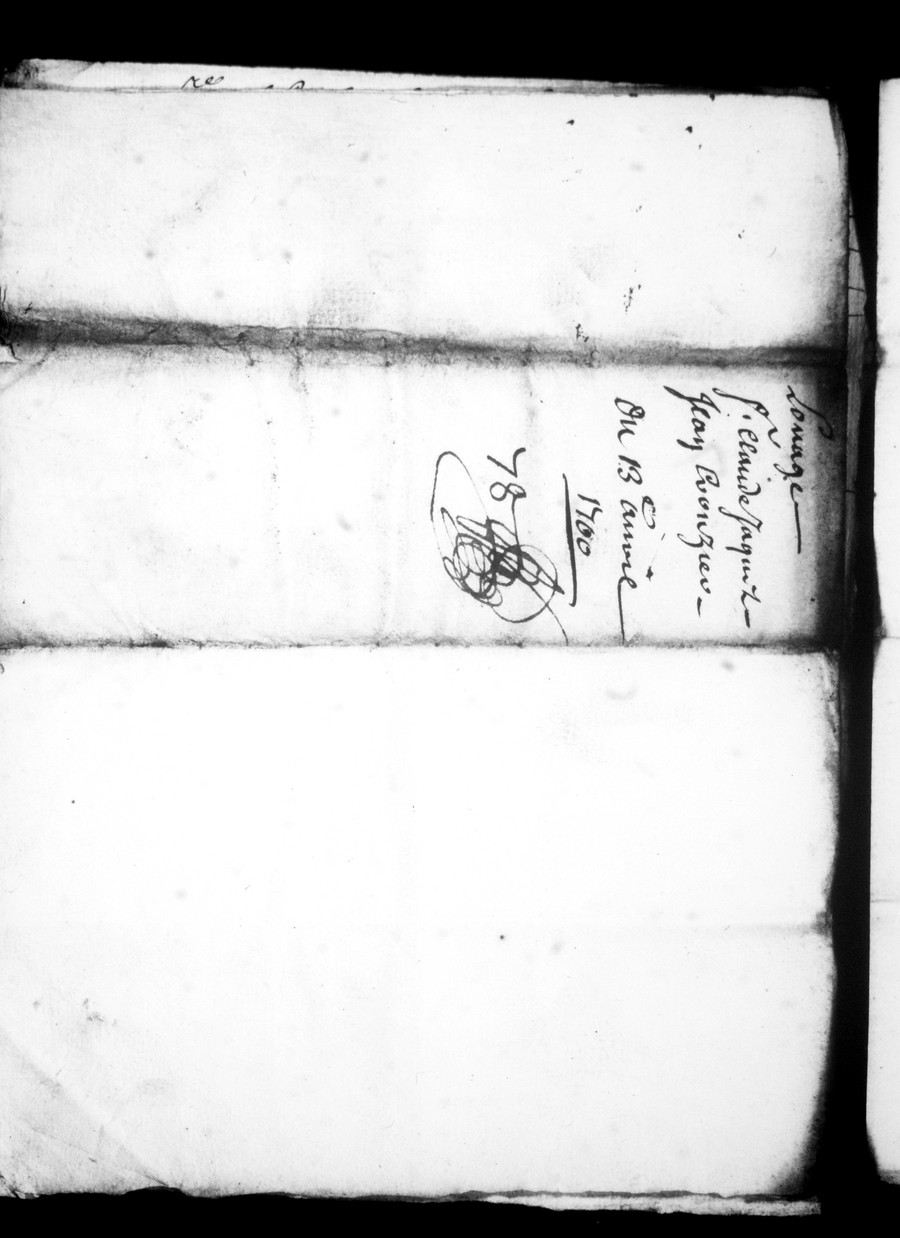 Louage
Sr. Claude Jaquet
Jean Crouzier
Du 13e. Auvril
1700
78